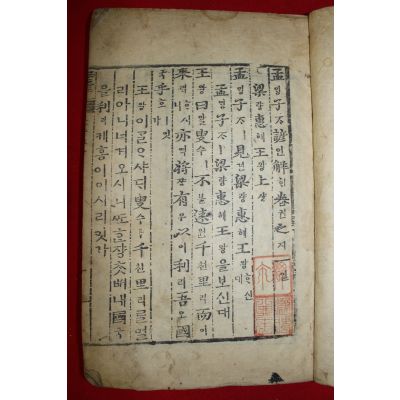 孟ᄆᆡᆼ子ᄌᆞ諺언解ᄒᆡ卷권之지一일
梁량惠혜王왕上샹
孟ᄆᆡᆼ子ᄌᆞㅣ見견梁량惠혜王왕ᄒᆞ신대
孟ᄆᆡᆼ子ᄌᆞㅣ梁량惠혜王왕을보신대
王왕曰왈叟수ㅣ不블遠원千쳔里리而이
來ᄅᆡᄒᆞ시니亦역將쟝有유以이利리吾오國
국乎호ㅣ잇가
王왕이ᄀᆞᆯᄋᆞ샤ᄃᆡ叟수ㅣ千쳔里리를멀
리아니너겨오시니ᄯᅩᄒᆞᆫ쟝ᄎᆞᆺᄡᅥ내國국
을利리케홈이이시리잇가